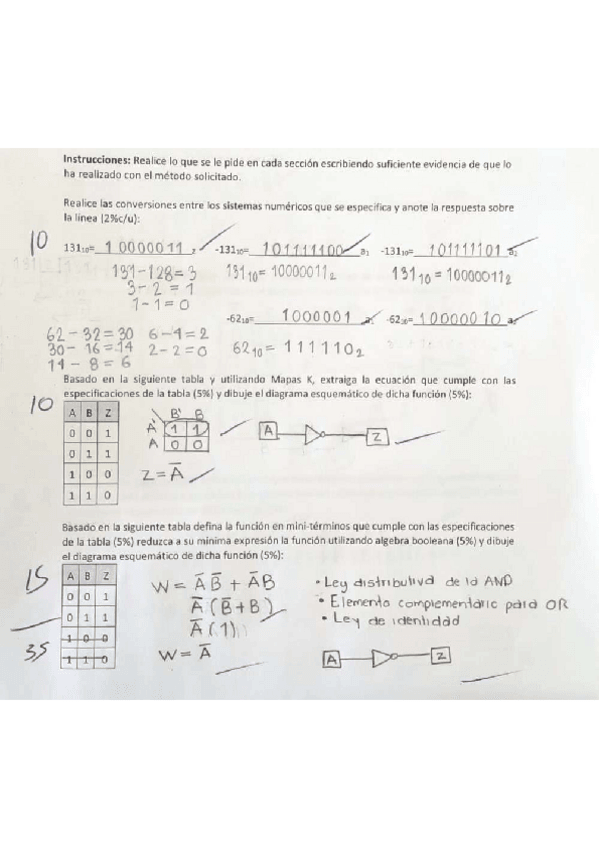 Instrucciones: Realice lo que se le pide en cada sección escribiendo suficiente evidencia de que lo
ha realizado con el método solicitado.
Realice las conversiones entre los sistemas numéricos que se especifica y anote la respuesta sobre
la línea (2%c/u):
10
131₁₀= 10000011 ₂ -131₁₀= 101111100 a₁ -131₁₀= 101111101 a₂
131-128=3 131₁₀=10000011₂ 131₁₀=10000011₂
3-2=1
1-1=0
-62₁₀= 1000001 a₁ -62₁₀= 1000010 a₂
62-32=30 6-4=2 62₁₀=111110₂
30-16=14 2-2=0
14-8=6
Basado en la siguiente tabla y utilizando Mapas K, extraiga la ecuación que cumple con las
especificaciones de la tabla (5%) y dibuje el diagrama esquemático de dicha función (5%):
10
A B Z
0 0 1
0 1 1
1 0 0
1 1 0
B' B
A' 1 1
A 0 0
Z=A̅
A Z
Basado en la siguiente tabla defina la función en mini-términos que cumple con las especificaciones
de la tabla (5%) reduzca a su minima expresión la función utilizando algebra booleana (5%) y dibuje
el diagrama esquemático de dicha función (5%):
15
35
A B Z
0 0 1
0 1 1
1 0 0
1 1 0
W=A̅B̅+A̅B
A̅(B̅+B)
A̅(1)
W=A̅
• Ley distributiva de la AND
• Elemento complementario para OR
• Ley de identidad
A Z